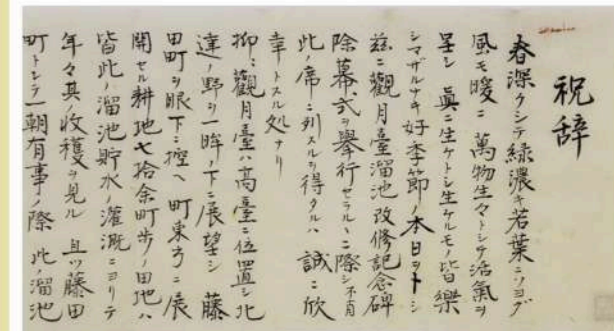 祝辞
春深クシテ緑濃キ若葉ニソヨグ
風モ暖ニ萬物生々トシテ活氣ヲ
呈シ眞ニ生ケトシ生ケルモノ皆樂
シマザルナキ好季節ノ本日ヲトシ
茲ニ觀月臺溜池改修記念碑
除幕式ヲ舉行セラルヽニ際シ不肖
此ノ席ニ列スルヲ得タルハ誠ニ欣
幸トスル処ナリ
抑ニ觀月臺ハ高臺ニ位置シ北
達ノ野ヲ一眸ノ下ニ展望シ藤
田町ヲ眼下ニ控ヘ町東方ニ展
開セル耕地七拾余町歩ノ田地ハ
皆此ノ溜池貯水ノ灌漑ニヨリテ
年々其ノ收穫ヲ見ル且ツ藤田
町トシテ一朝有事ノ際此ノ溜池